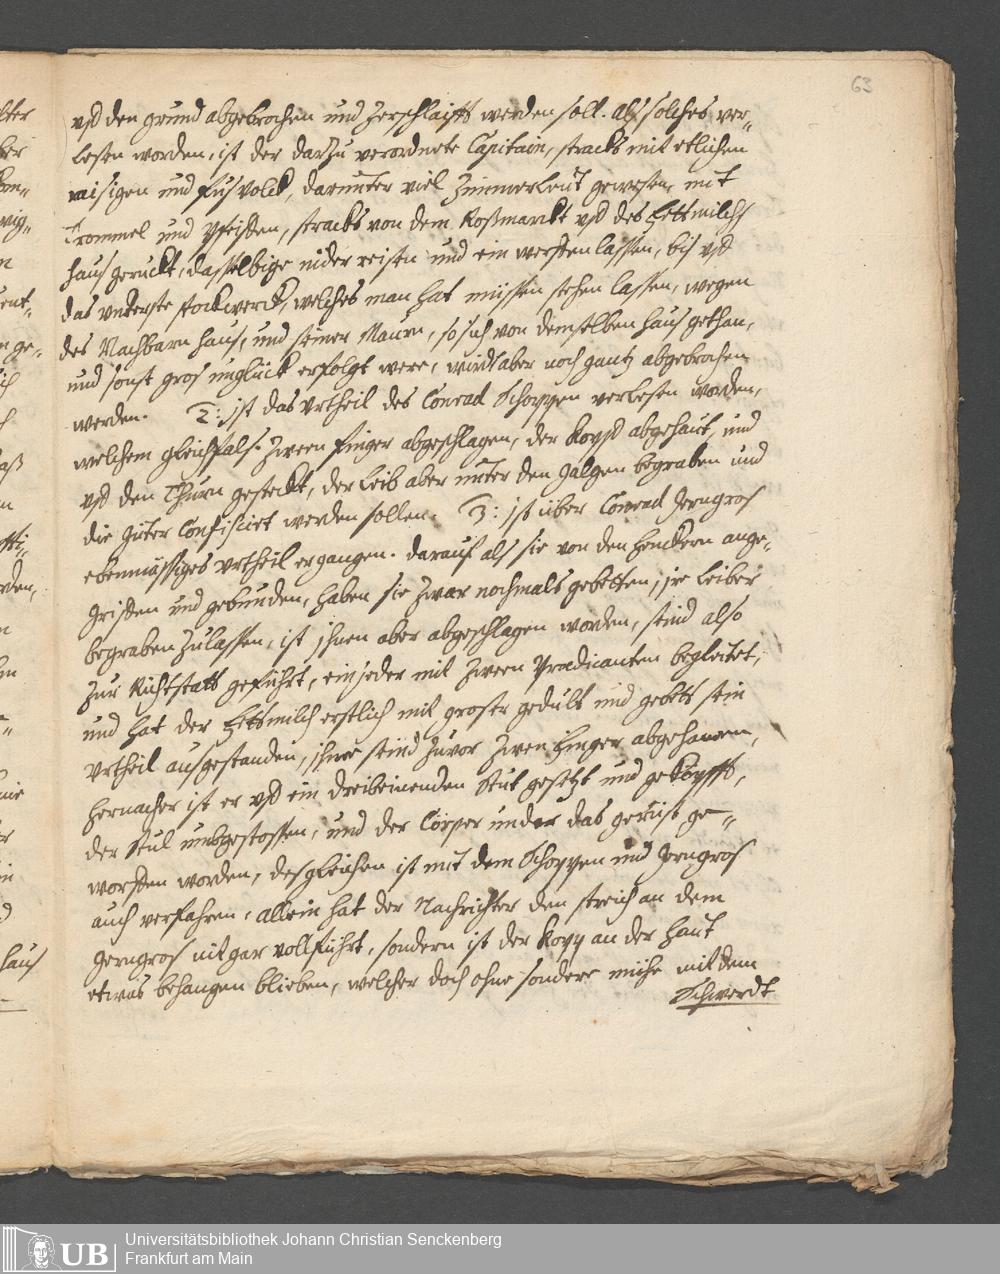 63
vff den grund abgebrochen und zerschlaifft werden soll. Als solches ver-
lesen worden, ist der darzu verordnete Capitain, stracks mit etlichen
raisigen und fusvolck, darunter viel Zimmerleut gewesen, mit
Trommel und Pfeiffen, stracks von dem Roßmarckt vff des Fettmilchs
haus geruckt, dasselbige nider reisen und ein werffen lassen, bis vff
das vnterste stockwerck, welches man hat müssen stehen lassen, wegen
des Nachbarn haus, und seiner Maurn, so sich von demselben haus gethan,
und sonst gros unglück erfolgt were, wirdt aber noch gantz abgebrochen
werden. 2: ist das Vrtheil des Conrad Schoppen verlesen worden,
welchem gleichfals zween finger abgeschlagen, der Kopff abgehaut, und
vff den Thurn gesteckt, der Leib aber unter den Galgen begraben und
die Güter Confisciret werden sollen. 3: ist über Conrad Gerngros
ebenmässiges Vrtheil ergangen. darauf als sie von den Henckern ange-
griffen und gebunden, haben sie zwar nochmals gebetten, jre Leiber
begraben zulassen, ist jhnen aber abgeschlagen worden, seind also
zur Richtstatt geführt, ein jeder mit zween Prædicanten begleitet,
und hat der Fettmilch erstlich mit groser gedult und gebett sein
Vrtheil ausgestanden, jhme seind zuvor zwen finger abgehauen,
hernacher ist er vff ein dreibeinenden Stul gesetzt und geköpfft,
der Stul umbgestossen, und der Cörper under das gerüst ge-
worffen worden, desgleichen ist mit dem Schoppen und Gerngros
auch verfahren, allein hat der Nachrichter den streich an dem
Gerngros nit gar vollführt, sondern ist der Kopff an der Haut
etwas behangen blieben, welcher doch ohne sondere mühe mit dem
Schwerdt
UB
Universitätsbibliothek Johann Christian Senckenberg
Frankfurt am Main